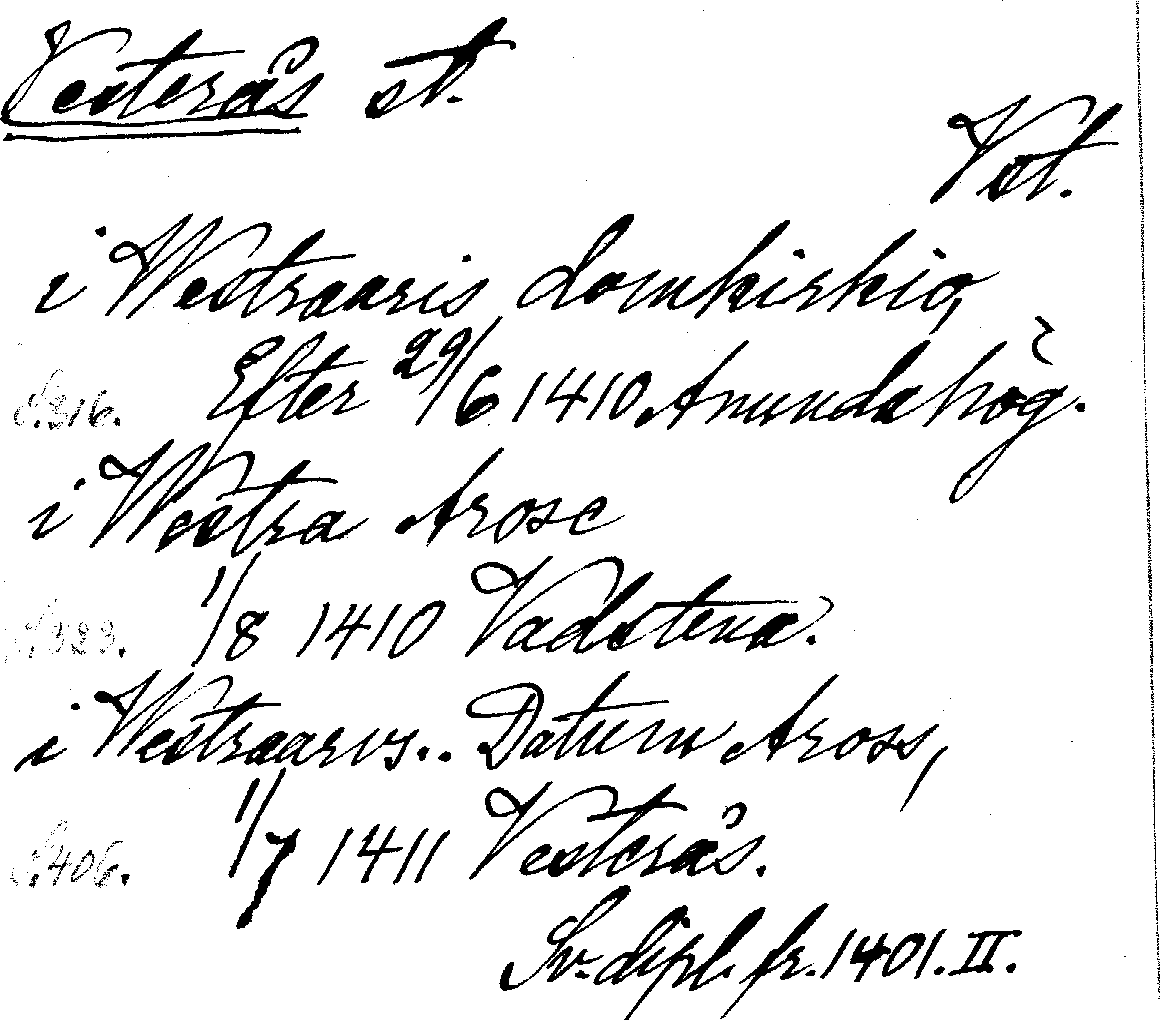 Vesterås st.
Vst.
i Westraaris domkirkio,
S. 316. Efter 29/6 1410 Anundahög.
i Westra Arose
S. 323. 1/8 1410 Vadstena.
i Westraarvs.. Datum Aross,
S. 406. 1/7 1411 Vesterås.
Sv. dipl. fr. 1401. II.